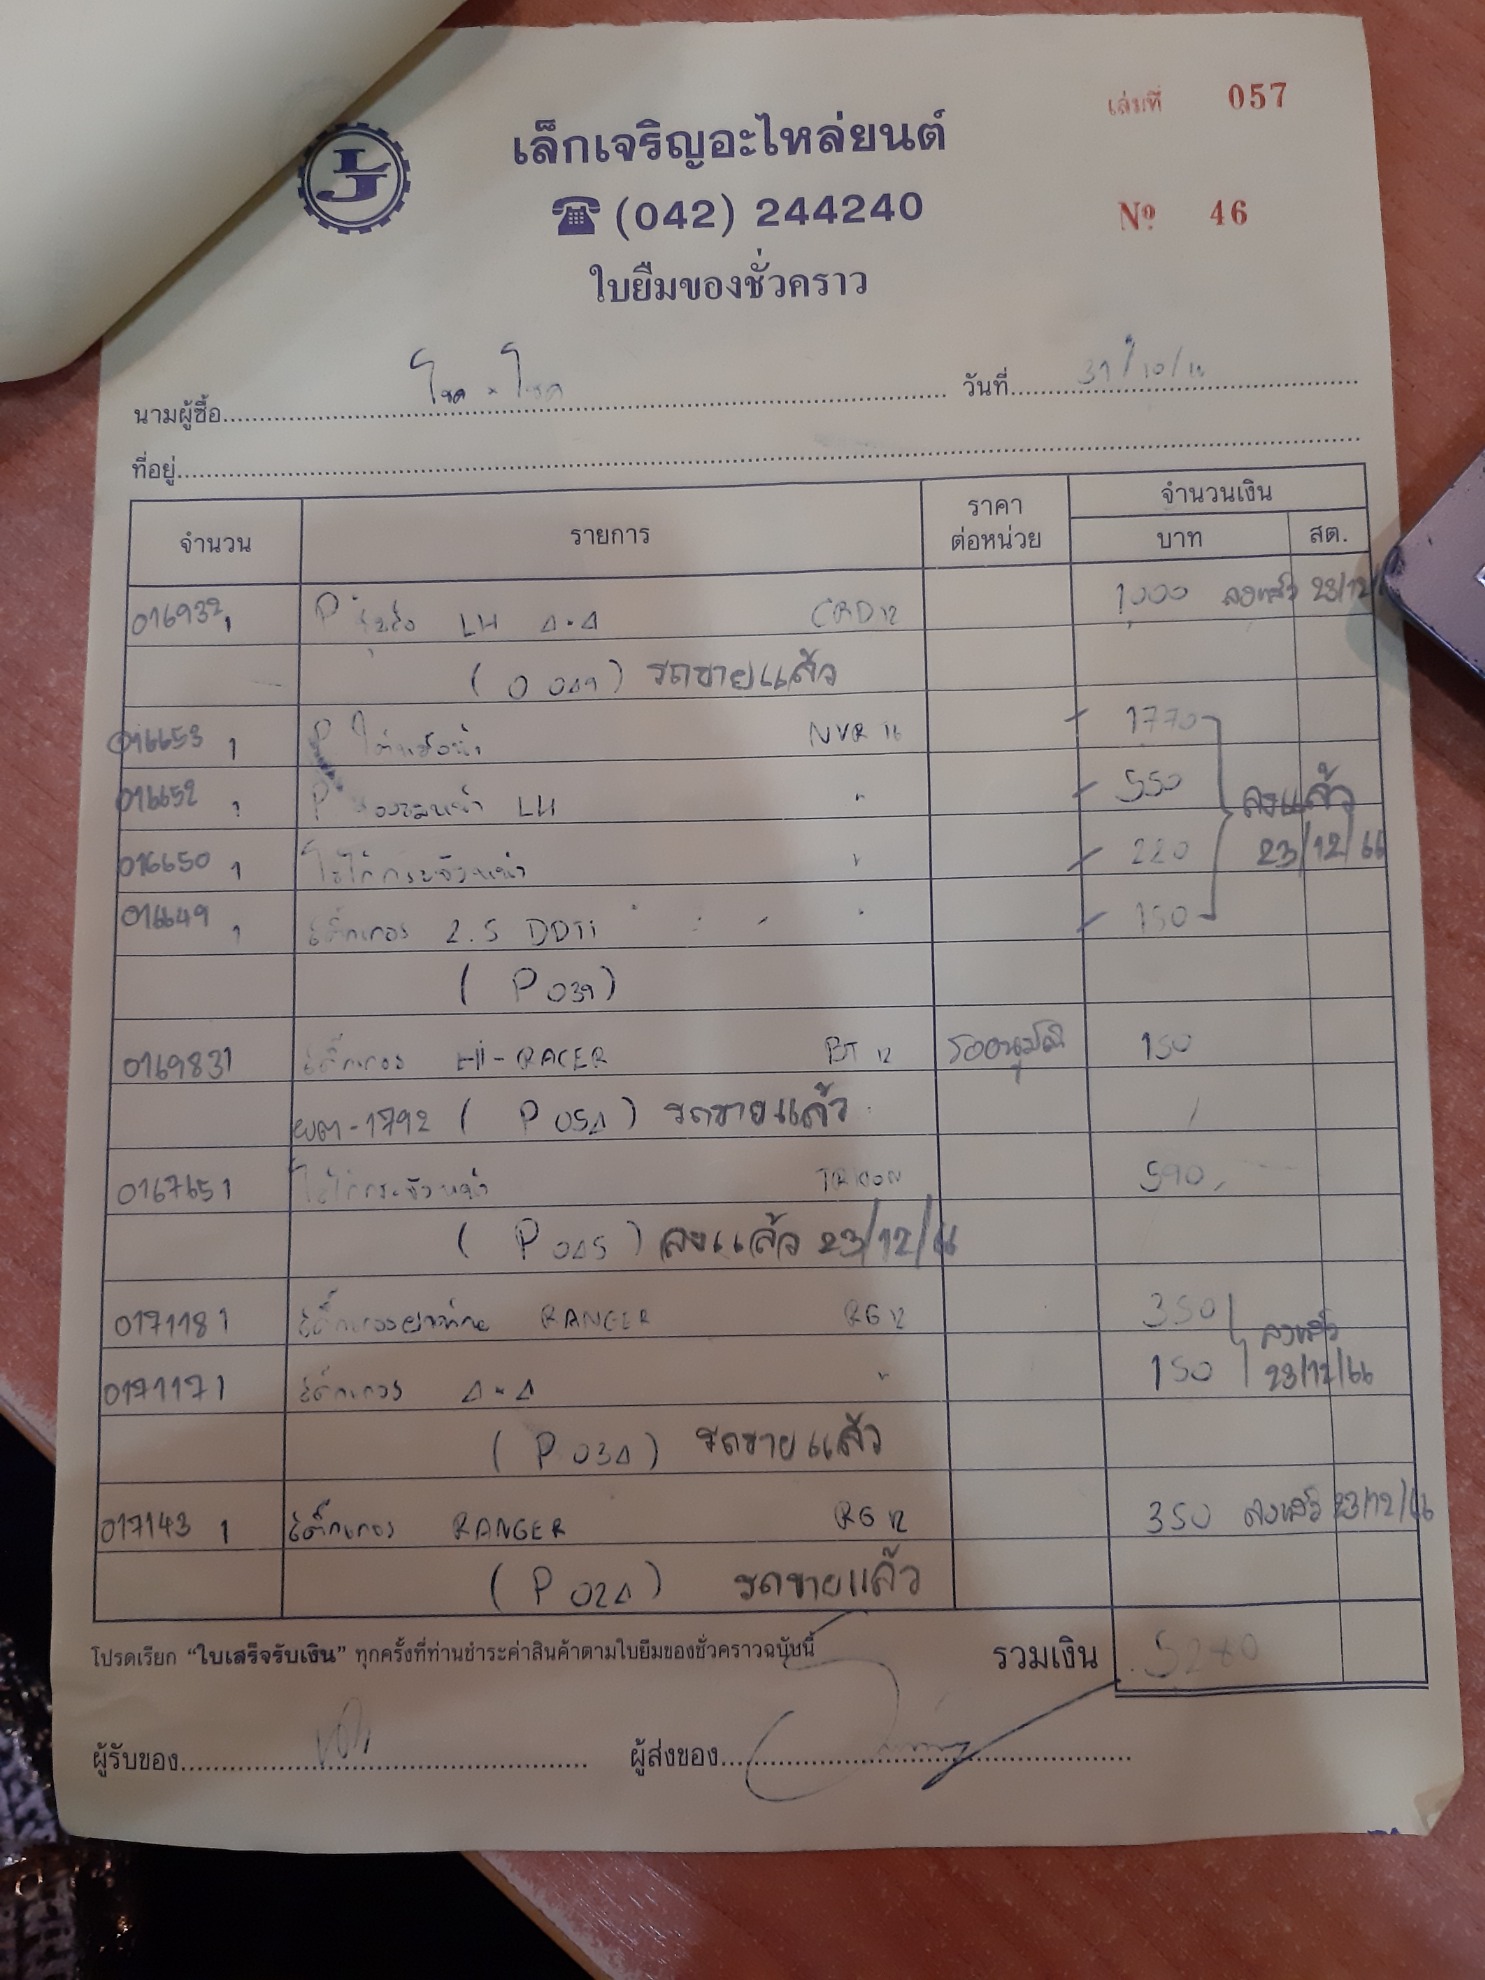 เล่มที่ 057
LJ
เล็กเจริญอะไหล่ยนต์
(042) 244240
Nº 46
ใบยืมของชั่วคราว
นามผู้ซื้อ โชค - โชค วันที่ 31/10/
ที่อยู่
จำนวน รายการ ราคาต่อหน่วย จำนวนเงิน
บาท สต.
016932 1 P LH CRD 12 1,000 ลงแล้ว 23/12/
รถขายแล้ว
016653 1 P NVR 16 1770
016652 1 P LH " 550 ลงแล้ว
016650 1 ไฟในกระจังหน้า " 220 23/12/66
016649 1 สติ๊กเกอร์ 2.5 DDTi " 150
(P 039)
016983 1 สติ๊กเกอร์ Hi-RACER BT 12 รออนุมัติ 150
ผต-1792 (P 054) รถขายแล้ว
016765 1 TRITON 590
(P 045) ลงแล้ว 23/12/66
017118 1 RANGER RG 12 350 ลงแล้ว
017117 1 สติ๊กเกอร์ 4x4 " 150 23/12/66
(P 034) รถขายแล้ว
017143 1 สติ๊กเกอร์ RANGER RG 12 350 ลงแล้ว 23/12/66
(P 024) รถขายแล้ว
โปรดเรียก “ใบเสร็จรับเงิน” ทุกครั้งที่ท่านชำระค่าสินค้าตามใบยืมของชั่วคราวฉบับนี้ รวมเงิน 5280
ผู้รับของ ผู้ส่งของ